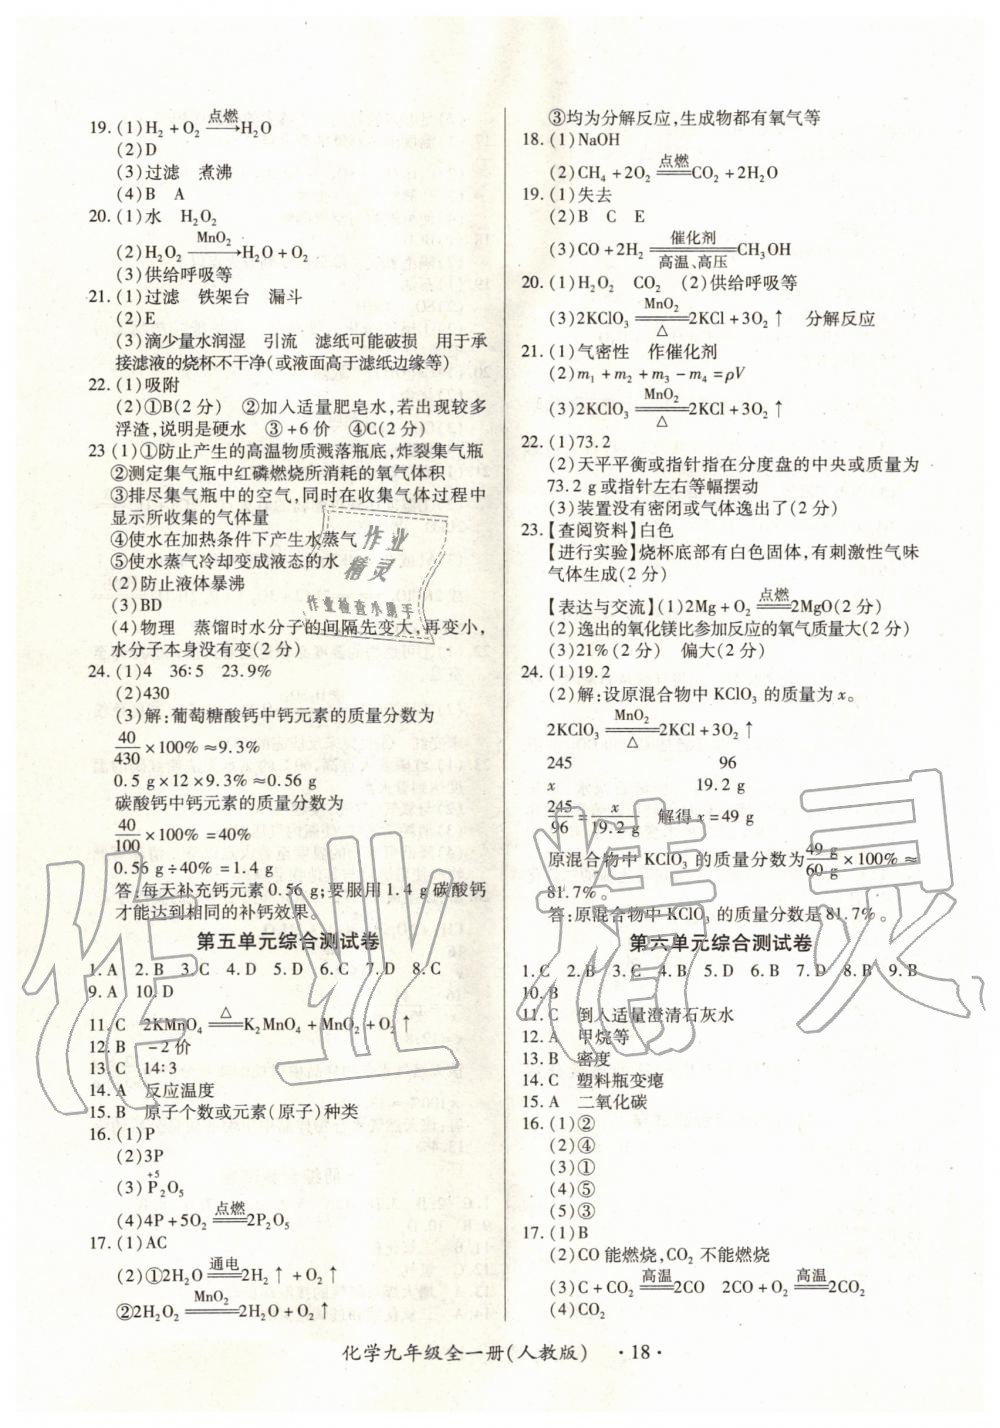 19. (1)H₂ + O₂ —点燃→ H₂O
(2)D
(3)过滤 煮沸
(4)B A
20. (1)水 H₂O₂
(2)H₂O₂ —MnO₂→ H₂O + O₂
(3)供给呼吸等
21. (1)过滤 铁架台 漏斗
(2)E
(3)滴少量水润湿 引流 滤纸可能破损 用于承
接滤液的烧杯不干净(或液面高于滤纸边缘等)
22. (1)吸附
(2)①B(2分) ②加入适量肥皂水,若出现较多
浮渣,说明是硬水 ③+6价 ④C(2分)
23 (1)①防止产生的高温物质溅落瓶底,炸裂集气瓶
②测定集气瓶中红磷燃烧所消耗的氧气体积
③排尽集气瓶中的空气,同时在收集气体过程中
显示所收集的气体量
④使水在加热条件下产生水蒸气
⑤使水蒸气冷却变成液态的水
(2)防止液体暴沸
(3)BD
(4)物理 蒸馏时水分子的间隔先变大,再变小,
水分子本身没有变(2分)
24. (1)4 36:5 23.9%
(2)430
(3)解:葡萄糖酸钙中钙元素的质量分数为
40/430 × 100% ≈ 9.3%
0.5 g × 12 × 9.3% ≈ 0.56 g
碳酸钙中钙元素的质量分数为
40/100 × 100% = 40%
0.56 g ÷ 40% = 1.4 g
答:每天补充钙元素0.56 g;要服用1.4 g碳酸钙
才能达到相同的补钙效果。
第五单元综合测试卷
1. A 2. B 3. C 4. D 5. D 6. C 7. D 8. C
9. A 10. D
11. C 2KMnO₄ =△= K₂MnO₄ + MnO₂ + O₂↑
12. B −2价
13. C 14:3
14. A 反应温度
15. B 原子个数或元素(原子)种类
16. (1)P
(2)3P
(3)P₂O₅ +5
(4)4P + 5O₂ =点燃= 2P₂O₅
17. (1)AC
(2)①2H₂O =通电= 2H₂↑ + O₂↑
②2H₂O₂ =MnO₂= 2H₂O + O₂↑
③均为分解反应,生成物都有氧气等
18. (1)NaOH
(2)CH₄ + 2O₂ =点燃= CO₂ + 2H₂O
19. (1)失去
(2)B C E
(3)CO + 2H₂ =催化剂 高温、高压= CH₃OH
20. (1)H₂O₂ CO₂ (2)供给呼吸等
(3)2KClO₃ =MnO₂ △= 2KCl + 3O₂↑ 分解反应
21. (1)气密性 作催化剂
(2)m₁ + m₂ + m₃ − m₄ = ρV
(3)2KClO₃ =MnO₂ △= 2KCl + 3O₂↑
22. (1)73.2
(2)天平平衡或指针指在分度盘的中央或质量为
73.2 g或指针左右等幅摆动
(3)装置没有密闭或气体逸出了(2分)
23. 【查阅资料】白色
【进行实验】烧杯底部有白色固体,有刺激性气味
气体生成(2分)
【表达与交流】(1)2Mg + O₂ =点燃= 2MgO(2分)
(2)逸出的氧化镁比参加反应的氧气质量大(2分)
(3)21%(2分) 偏大(2分)
24. (1)19.2
(2)解:设原混合物中KClO₃的质量为x。
2KClO₃ =MnO₂ △= 2KCl + 3O₂↑
245 96
x 19.2 g
245/96 = x/19.2 g 解得x = 49 g
原混合物中KClO₃的质量分数为49 g/60 g × 100% ≈
81.7%。
答:原混合物中KClO₃的质量分数是81.7%。
第六单元综合测试卷
1. C 2. B 3. C 4. B 5. D 6. B 7. D 8. B 9. B
10. B
11. C 倒入适量澄清石灰水
12. A 甲烷等
13. B 密度
14. C 塑料瓶变瘪
15. A 二氧化碳
16. (1)②
(2)④
(3)①
(4)⑤
(5)③
17. (1)B
(2)CO能燃烧,CO₂不能燃烧
(3)C + CO₂ =高温= 2CO 2CO + O₂ =高温= 2CO₂
(4)CO₂
化学九年级全一册(人教版) ·18·
作业
精灵
作业检查小助手
作业精灵